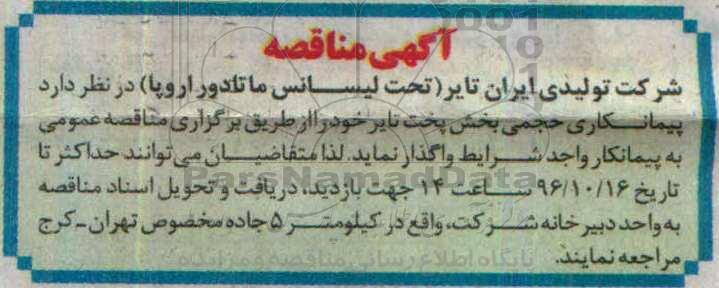 آگهی مناقصه
شرکت تولیدی ایران تایر (تحت لیسانس ماتادور اروپا) در نظر دارد
پیمانکاری حجمی بخش پخت تایر خود را از طریق برگزاری مناقصه عمومی
به پیمانکار واجد شرایط واگذار نماید. لذا متقاضیان می توانند حداکثر تا
تاریخ ۹۶/۱۰/۱۶ ساعت ۱۴ جهت بازدید، دریافت و تحویل اسناد مناقصه
به واحد دبیرخانه شرکت، واقع در کیلومتر ۵ جاده مخصوص تهران-کرج
مراجعه نمایند.
ParsNamadData
پایگاه اطلاع رسانی مناقصه و مزایده